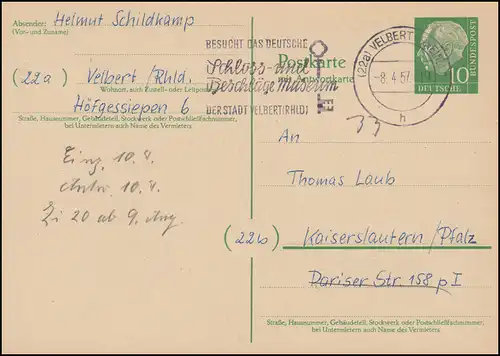 Absender: Helmut Schildkamp
(Vor- und Zuname)
(22a) Velbert /Rhld.
Wohnort, auch Zustell- oder Leitpostamt
Höfgessiepen 6
Straße, Hausnummer, Gebäudeteil, Stockwerk oder Postschließfachnummer,
bei Untermietern auch Name des Vermieters
BESUCHT DAS DEUTSCHE
Schloss- und
Beschläge Museum
DER STADT VELBERT (RHLD)
Postkarte
mit Antwortkarte
(22a) VELBERT
-8.4.57
h
10
DEUTSCHE
BUNDESPOST
33
Eing. 10.4.
Antw. 10.4.
Zi 20 ab 9. Aug.
An
Thomas Laub
(22b) Kaiserslautern /Pfalz
Pariser Str. 158 p I
Straße, Hausnummer, Gebäudeteil, Stockwerk oder Postschließfachnummer,
bei Untermietern auch Name des Vermieters